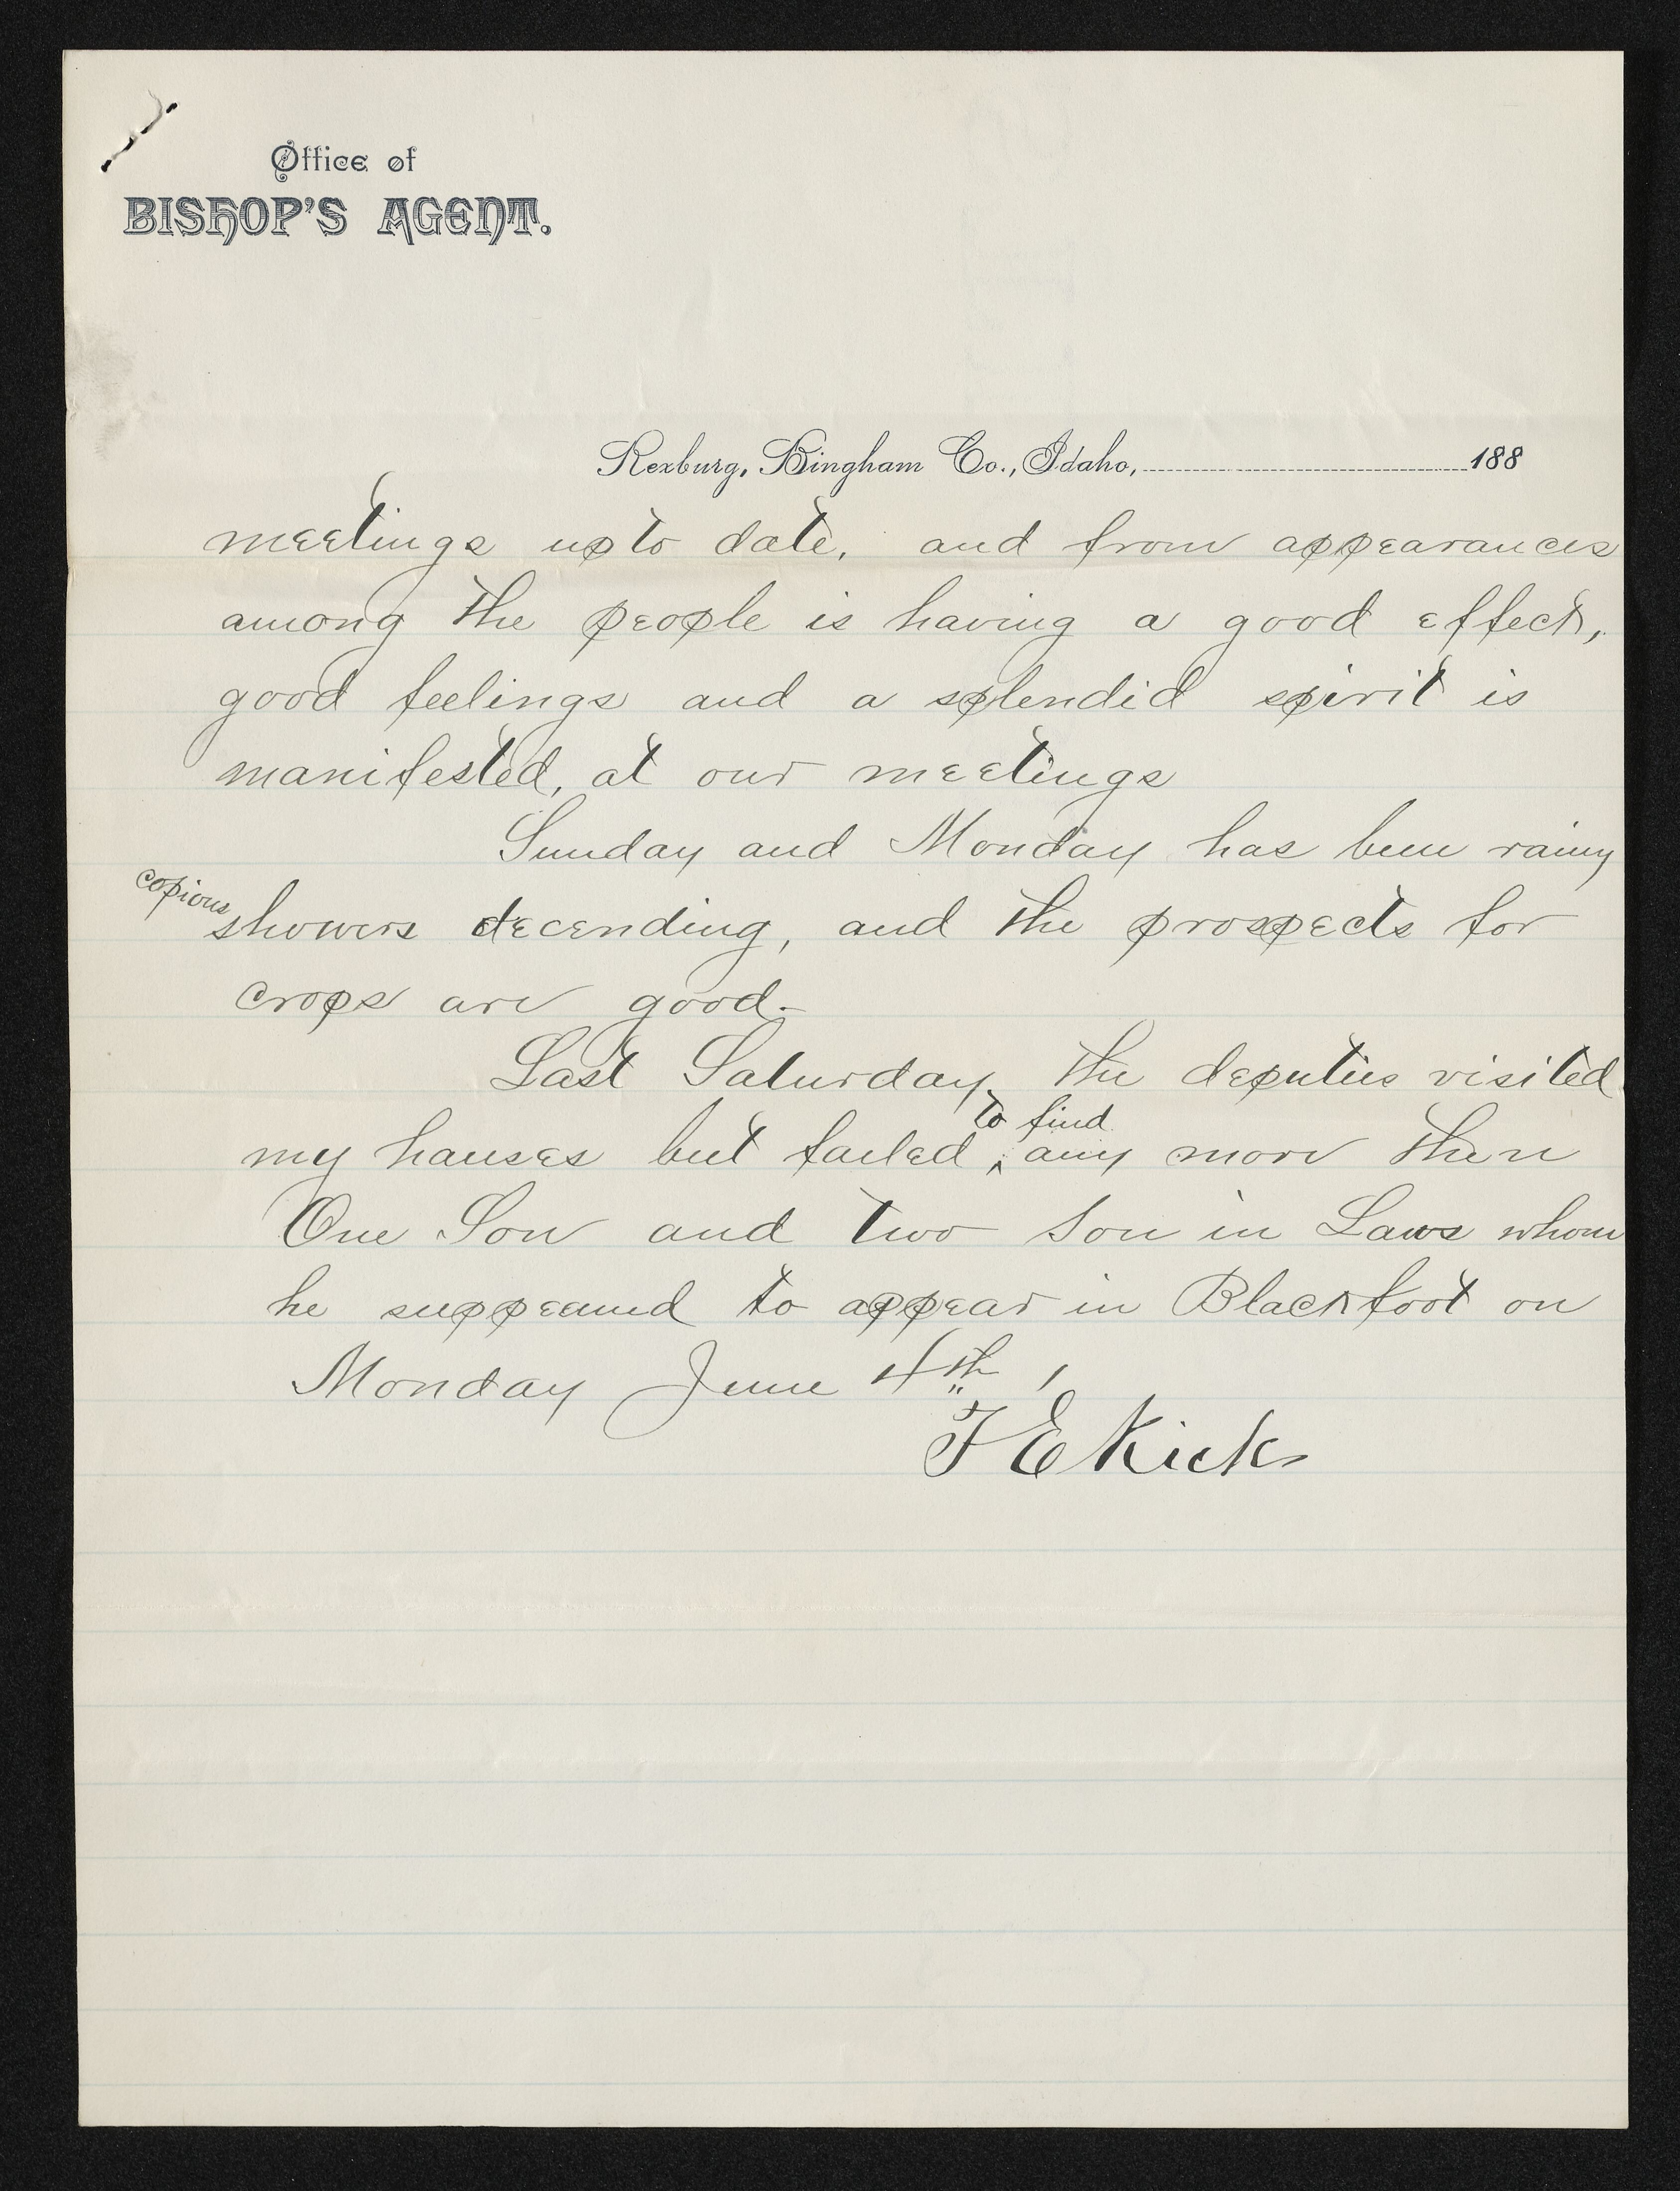 Office of
BISHOP'S AGENT.
Rexburg, Bingham Co., Idaho, 188
meetings up to date, and from appearances
among the people is having a good effect,
good feelings and a splendid spirit is
manifested, at our meetings
Sunday and Monday has been rainy
copious showers decending, and the prospects for
crops are good.
Last Saturday, the deputies visited
to find
my houses but failed ‸ any more then
One Son and two Son in Laws whom
he suppeamed to appear in Blackfoot on
Monday June 4th,
T E Ricks